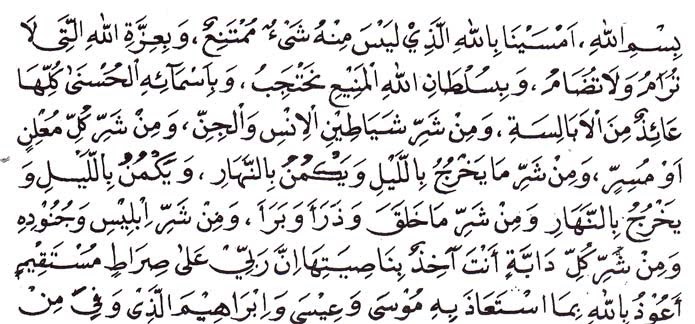 بِسْمِ اللهِ، اَمْسَيْنَا بِاللهِ الَّذِيْ لَيْسَ مِنْهُ شَيْءٌ مُمْتَنِعٌ، وَبِعِزَّةِ اللهِ الَّتِى لَا
تُرَامُ وَلَا تُضَامُ، وَبِسُلْطَانِ اللهِ الْمَنِيْعِ نَحْتَجِبُ، وَبِاَسْمَآئِهِ الْحُسْنَى كُلِّهَا
عَائِذٌ مِنَ الْاَبَالِسَةِ، وَمِنْ شَرِّ شَيَاطِيْنِ الْاِنْسِ وَالْجِنِّ، وَمِنْ شَرِّ كُلِّ مُعْلِنٍ
اَوْ مُسِرٍّ، وَمِنْ شَرِّ مَا يَخْرُجُ بِاللَّيْلِ وَيَكْمُنُ بِالنَّهَارِ، وَيَكْمُنُ بِاللَّيْلِ وَ
يَخْرُجُ بِالنَّهَارِ وَمِنْ شَرِّ مَا خَلَقَ وَذَرَأَ وَبَرَأَ، وَمِنْ شَرِّ اِبْلِيْسَ وَجُنُوْدِهِ
وَمِنْ شَرِّ كُلِّ دَابَّةٍ أَنْتَ آخِذٌ بِنَاصِيَتِهَا اِنَّ رَبِّيْ عَلَى صِرَاطٍ مُسْتَقِيْمٍ
أَعُوْذُ بِاللهِ بِمَا اسْتَعَاذَ بِهِ مُوْسَى وَعِيْسَى وَاِبْرَاهِيْمَ الَّذِيْ وَفَّى مِنْ